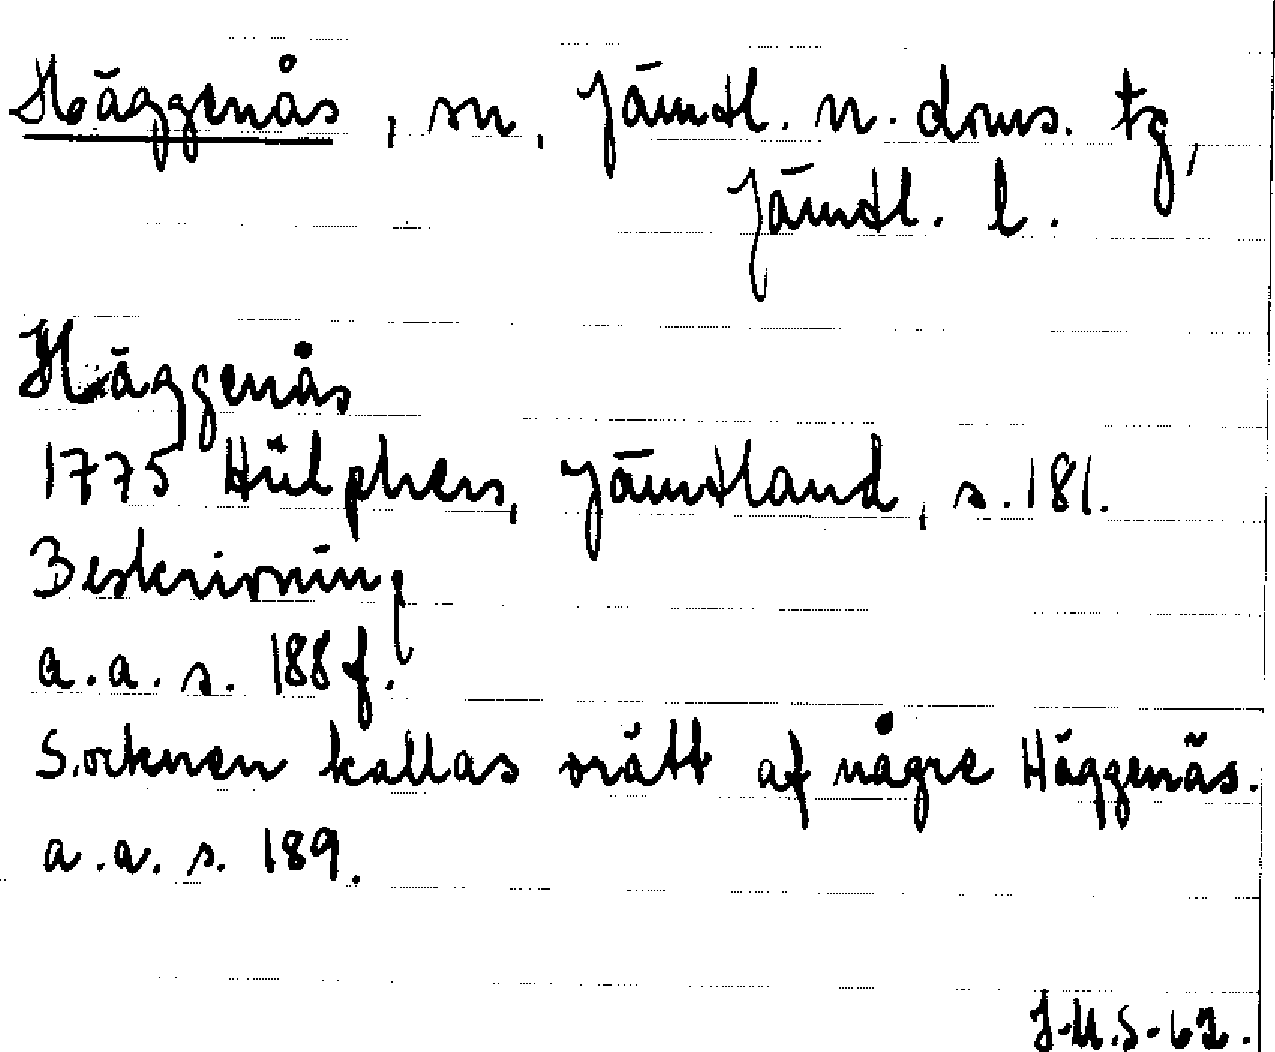 Häggenås, sn, Jämtl. n. doms. tg,
Jämtl. l.
Häggenås
1775 Hülphers, Jämtland, s. 181.
Beskrivning
a.a. s. 188 f.
Socknen kallas orätt af någre Häggenäs.
a.a. s. 189.
J-M.S-62.